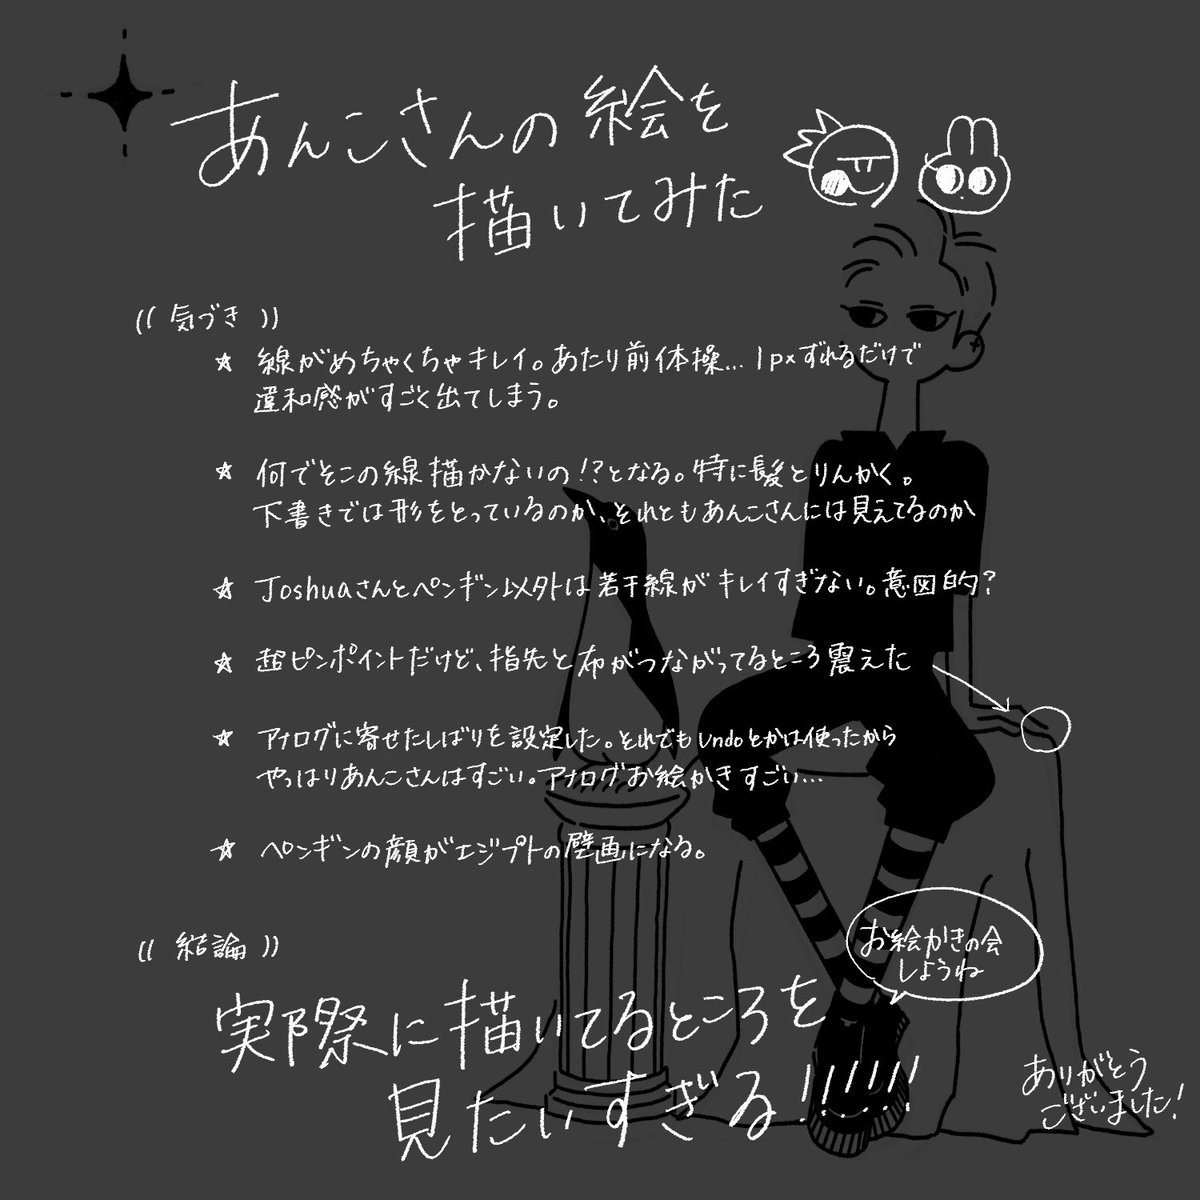 あんこさんの絵を
描いてみた
(( 気づき ))
☆ 線がめちゃくちゃキレイ。あたり前体操… 1pxずれるだけで
違和感がすごく出てしまう。
☆ 何でそこの線描かないの!?となる。特に髪とりんかく。
下書きでは形をとっているのか、それともあんこさんには見えてるのか
☆ Joshuaさんとペンギン以外は若干線がキレイすぎない。意図的?
☆ 超ピンポイントだけど、指先と布がつながってるところ震えた
☆ アナログに寄せたしばりを設定した。それでもundoとかは使ったから
やっぱりあんこさんはすごい。アナログお絵かきすごい…
☆ ペンギンの顔がエジプトの壁画になる。
(( 結論 ))
お絵かきの会
しようね
実際に描いてるところを
見たいすぎる!!!!!!
ありがとう
ございました!